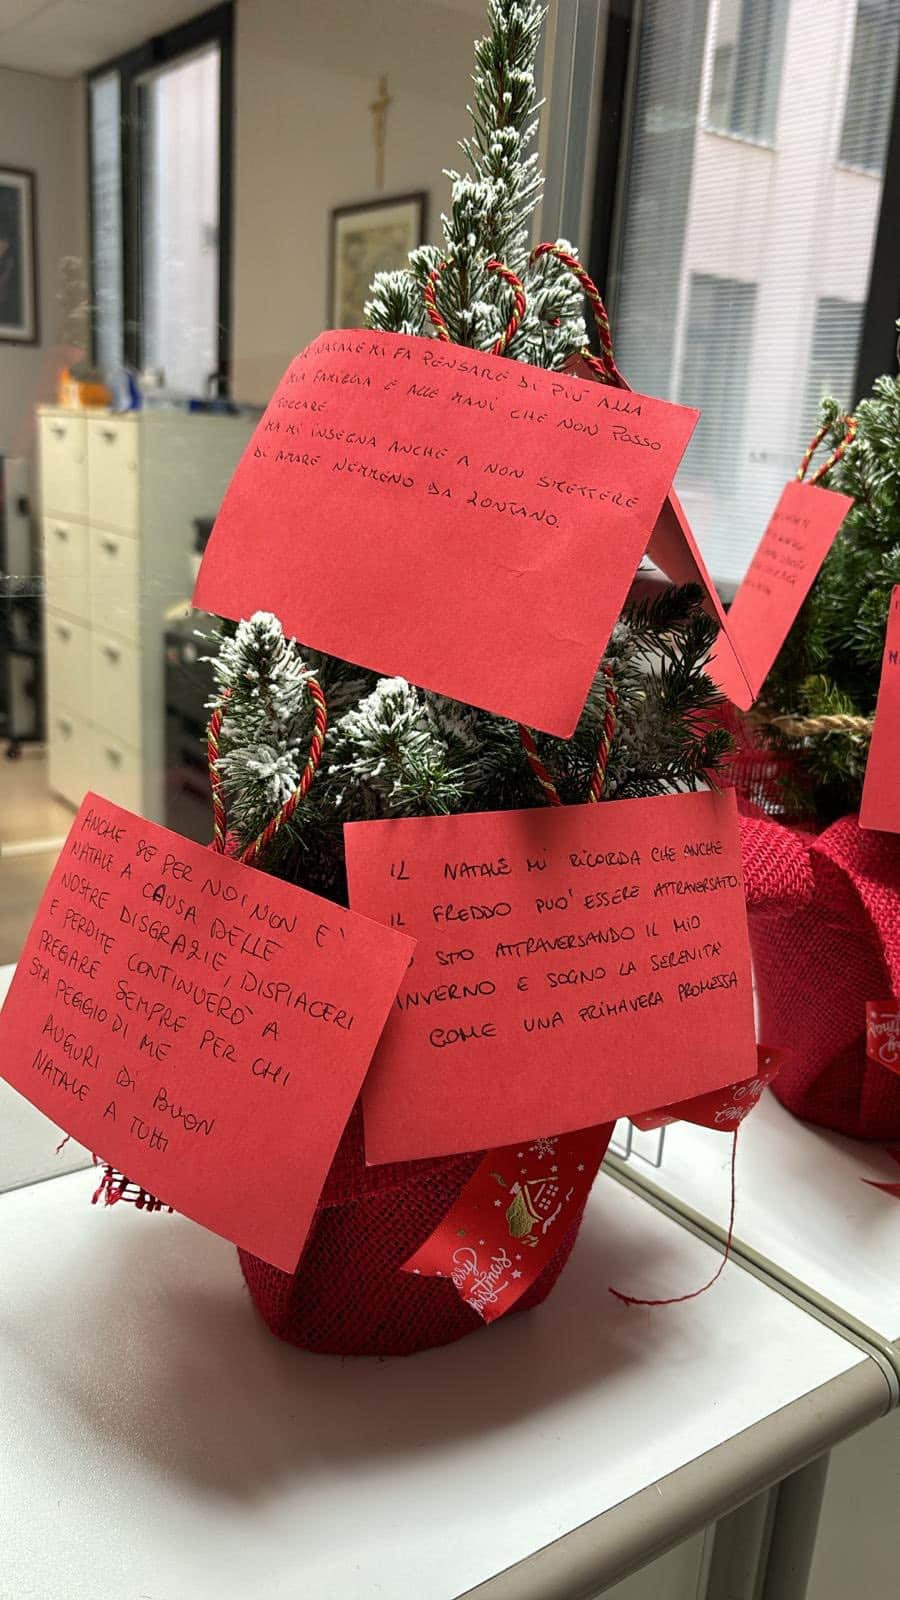 IL NATALE MI FA PENSARE DI PIÙ ALLA
MIA FAMIGLIA E ALLE MANI CHE NON POSSO
TOCCARE.
MA MI INSEGNA ANCHE A NON SMETTERE
DI AMARE NEMMENO DA LONTANO.
ANCHE SE PER NOI NON E'
NATALE A CAUSA DELLE
NOSTRE DISGRAZIE, DISPIACERI
E PERDITE CONTINUERÒ A
PREGARE SEMPRE PER CHI
STA PEGGIO DI ME
AUGURI DI BUON
NATALE A TUTTI
IL NATALE MI RICORDA CHE ANCHE
IL FREDDO PUO' ESSERE ATTRAVERSATO.
STO ATTRAVERSANDO IL MIO
INVERNO E SOGNO LA SERENITA'
COME UNA PRIMAVERA PROMESSA
Merry
Christmas